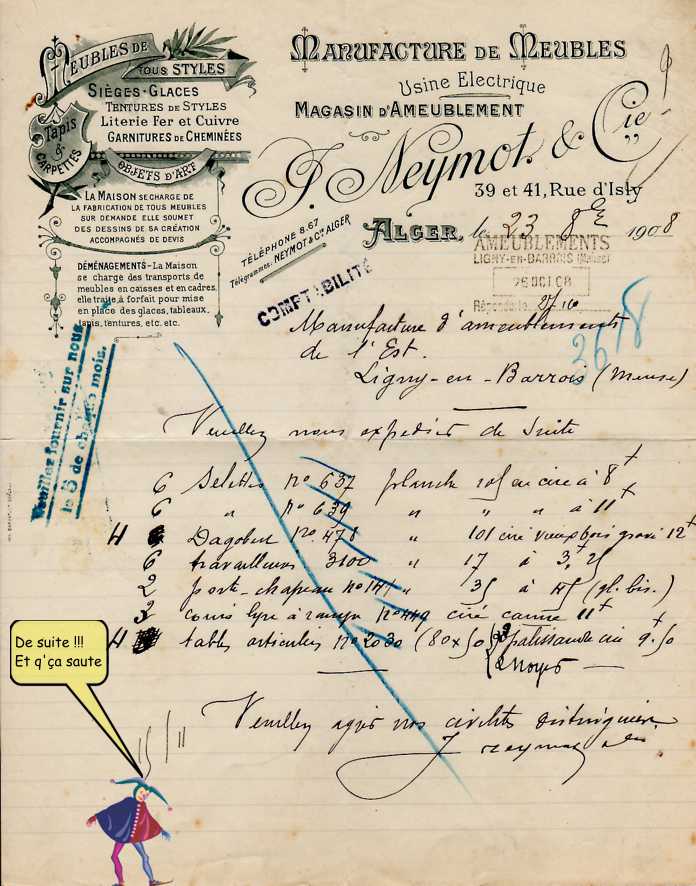 MEUBLES DE
TOUS STYLES
SIÈGES-GLACES
TENTURES DE STYLES
LITERIE FER ET CUIVRE
GARNITURES DE CHEMINÉES
Tapis
&
CARPETTES
OBJETS D'ART
LA MAISON SE CHARGE DE
LA FABRICATION DE TOUS MEUBLES
SUR DEMANDE ELLE SOUMET
DES DESSINS DE SA CRÉATION
ACCOMPAGNÉS DE DEVIS
DÉMÉNAGEMENTS-La Maison
se charge des transports de
meubles en caisses et en cadres,
elle traite à forfait pour mise
en place des glaces, tableaux,
tapis, tentures, etc. etc.
MANUFACTURE DE MEUBLES
Usine Electrique
MAGASIN D'AMEUBLEMENT
J. Neymot & Cie
39 et 41, Rue d'Isly
TÉLÉPHONE 8.67
Télégrammes: NEYMOT & Cie ALGER
ALGER, le 23 8bre 1908
AMEUBLEMENTS
LIGNY-EN-BARROIS (Meuse)
26 OCT 08
Répondu le 27/10
COMPTABILITÉ
2618
Veuillez fournir sur nous
le 5 de chaque mois.
Manufacture d'ameublements
de l'Est.
Ligny-en-Barrois (Meuse)
Veuillez nous expédier de suite
6 Selettes no 637 planche 101 en ciré à 8+
6 " no 639 " " " à 11+
4 Dagobert no 478 " 101 ciré vieux bois gravé 12+
6 travailleuses 3100 " 17 à 3+
2 porte-chapeau no " 35 à
3 no 449 ciré canné 11+
4 tables articulées no 2030 (80x50) palissandre ciré 9.50
2 Noyer —
Veuillez agréer nos civilités distinguées
J Neymot & Cie
De suite !!!
Et q'ça saute